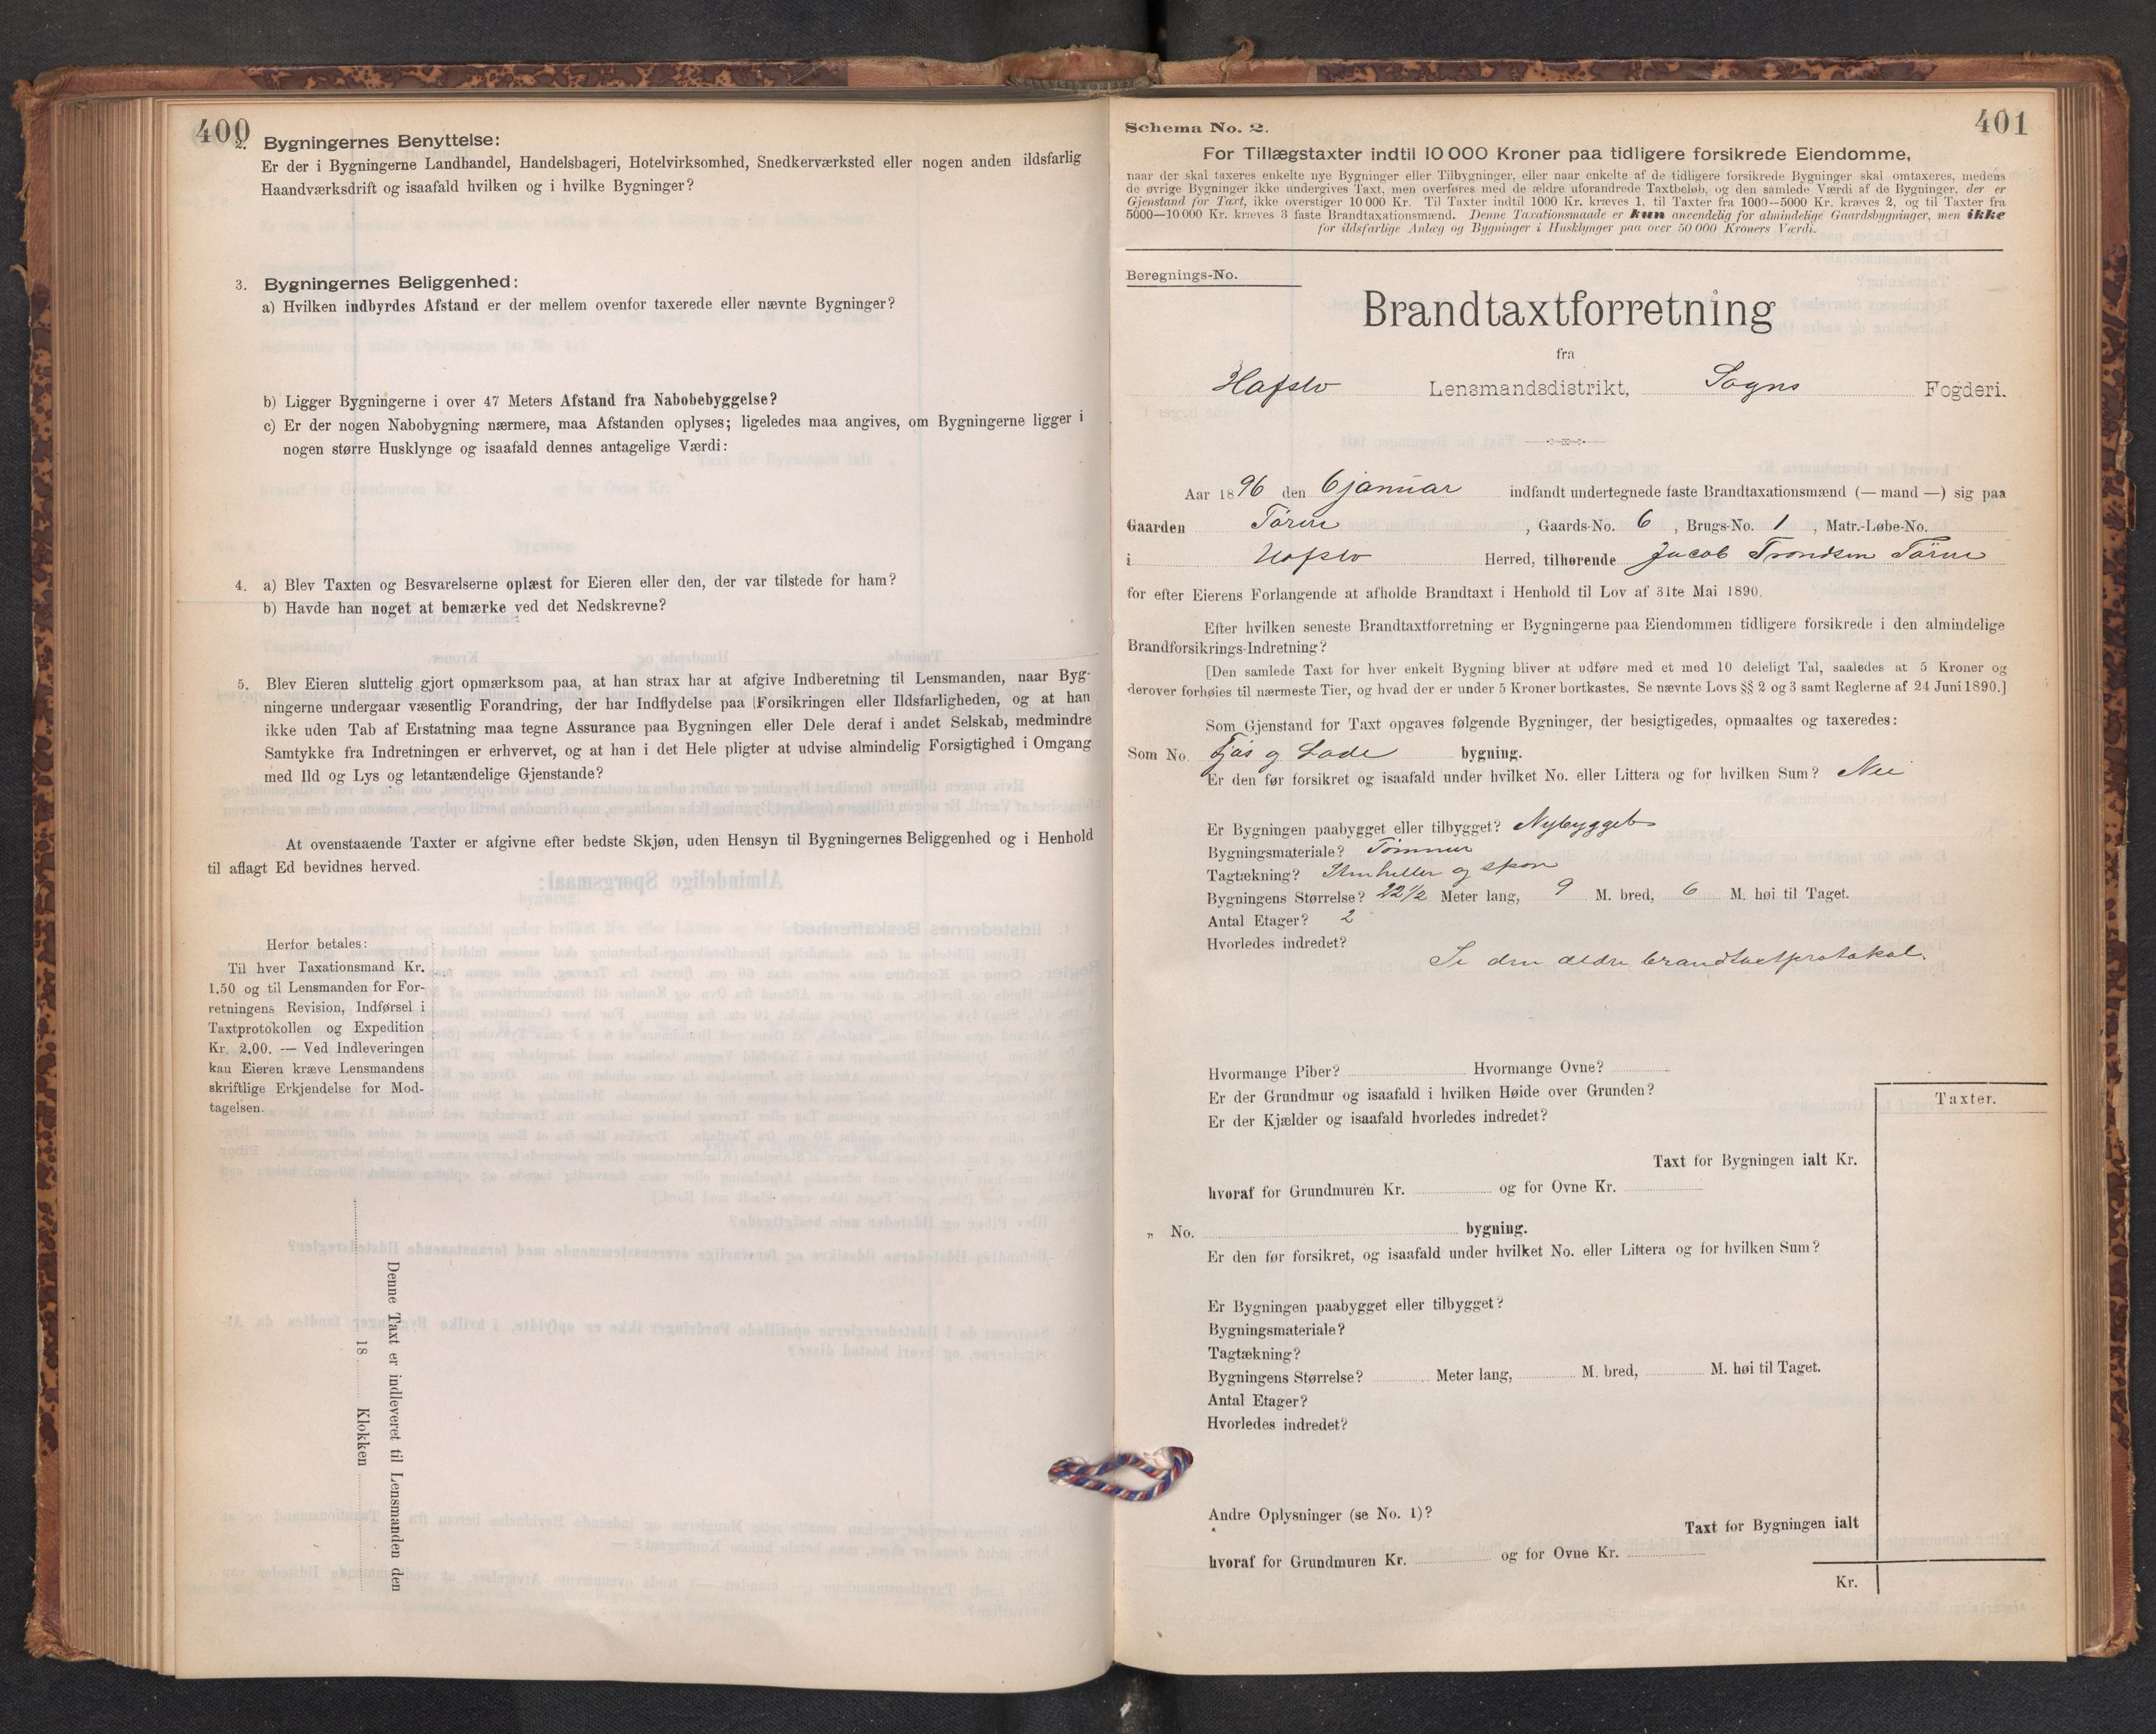 400
2. Bygningernes Benyttelse:
Er der i Bygningerne Landhandel, Handelsbageri, Hotelvirksomhed, Snedkerværksted eller nogen anden ildsfarlig
Haandværksdrift og isaafald hvilken og i hvilke Bygninger?
3. Bygningernes Beliggenhed:
a) Hvilken indbyrdes Afstand er der mellem ovenfor taxerede eller nævnte Bygninger?
b) Ligger Bygningerne i over 47 Meters Afstand fra Nabobebyggelse?
c) Er der nogen Nabobygning nærmere, maa Afstanden oplyses; ligeledes maa angives, om Bygningerne ligger i
nogen større Husklynge og isaafald dennes antagelige Værdi:
4. a) Blev Taxten og Besvarelserne oplæst for Eieren eller den, der var tilstede for ham?
b) Havde han noget at bemærke ved det Nedskrevne?
5. Blev Eieren sluttelig gjort opmærksom paa, at han strax har at afgive Indberetning til Lensmanden, naar Byg-
ningerne undergaar væsentlig Forandring, der har Indflydelse paa Forsikringen eller Ildsfarligheden, og at han
ikke uden Tab af Erstatning maa tegne Assurance paa Bygningen eller Dele deraf i andet Selskab, medmindre
Samtykke fra Indretningen er erhvervet, og at han i det Hele pligter at udvise almindelig Forsigtighed i Omgang
med Ild og Lys og letantændelige Gjenstande?
At ovenstaaende Taxter er afgivne efter bedste Skjøn, uden Hensyn til Bygningernes Beliggenhed og i Henhold
til aflagt Ed bevidnes herved.
Herfor betales:
Til hver Taxationsmand Kr.
1.50 og til Lensmanden for For-
retningens Revision, Indførsel i
Taxtprotokollen og Expedition
Kr. 2.00. — Ved Indleveringen
kan Eieren kræve Lensmandens
skriftlige Erkjendelse for Mod-
tagelsen.
Denne Taxt er indleveret til Lensmanden den
18 Klokken
401
Schema No. 2.
For Tillægstaxter indtil 10 000 Kroner paa tidligere forsikrede Eiendomme,
naar der skal taxeres enkelte nye Bygninger eller Tilbygninger, eller naar enkelte af de tidligere forsikrede Bygninger skal omtaxeres, medens
de øvrige Bygninger ikke undergives Taxt, men overføres med de ældre uforandrede Taxtbeløb, og den samlede Værdi af de Bygninger, der er
Gjenstand for Taxt, ikke overstiger 10 000 Kr. Til Taxter indtil 1000 Kr. kræves 1, til Taxter fra 1000—5000 Kr. kræves 2, og til Taxter fra
5000—10 000 Kr. kræves 3 faste Brandtaxationsmænd. Denne Taxationsmaade er kun anvendelig for almindelige Gaardsbygninger, men ikke
for ildsfarlige Anlæg og Bygninger i Husklynger paa over 50 000 Kroners Værdi.
Beregnings-No.
Brandtaxtforretning
fra
Hafslo Lensmandsdistrikt, Sogns Fogderi.
Aar 1896 den 6 januar indfandt undertegnede faste Brandtaxationsmænd (— mand —) sig paa
Gaarden Tørve, Gaards-No. 6, Brugs-No. 1, Matr.-Løbe-No.
i Hafslo Herred, tilhørende Jacob Trondsen Tørve
for efter Eierens Forlangende at afholde Brandtaxt i Henhold til Lov af 31te Mai 1890.
Efter hvilken seneste Brandtaxtforretning er Bygningerne paa Eiendommen tidligere forsikrede i den almindelige
Brandforsikrings-Indretning?
[Den samlede Taxt for hver enkelt Bygning bliver at udføre med et med 10 deleligt Tal, saaledes at 5 Kroner og
derover forhøies til nærmeste Tier, og hvad der er under 5 Kroner bortkastes. Se nævnte Lovs §§ 2 og 3 samt Reglerne af 24 Juni 1890.]
Som Gjenstand for Taxt opgaves følgende Bygninger, der besigtigedes, opmaaltes og taxeredes:
Som No. Fjøs og Lade bygning.
Er den før forsikret og isaafald under hvilket No. eller Littera og for hvilken Sum? Nei
Er Bygningen paabygget eller tilbygget? Nybygget
Bygningsmateriale? Tømmer
Tagtækning? Stenheller og spon
Bygningens Størrelse? 22 1/2 Meter lang, 9 M. bred, 6 M. høi til Taget.
Antal Etager? 2
Hvorledes indredet?
Se den ældre brandtaxtprotokol.
Hvormange Piber? Hvormange Ovne?
Er der Grundmur og isaafald i hvilken Høide over Grunden?
Er der Kjælder og isaafald hvorledes indredet?
Taxter.
Taxt for Bygningen ialt Kr.
hvoraf for Grundmuren Kr. og for Ovne Kr.
„ No. bygning.
Er den før forsikret, og isaafald under hvilket No. eller Littera og for hvilken Sum?
Er Bygningen paabygget eller tilbygget?
Bygningsmateriale?
Tagtækning?
Bygningens Størrelse? Meter lang, M. bred, M. høi til Taget.
Antal Etager?
Hvorledes indredet?
Andre Oplysninger (se No. 1)?
Taxt for Bygningen ialt
hvoraf for Grundmuren Kr. og for Ovne Kr.
Kr.